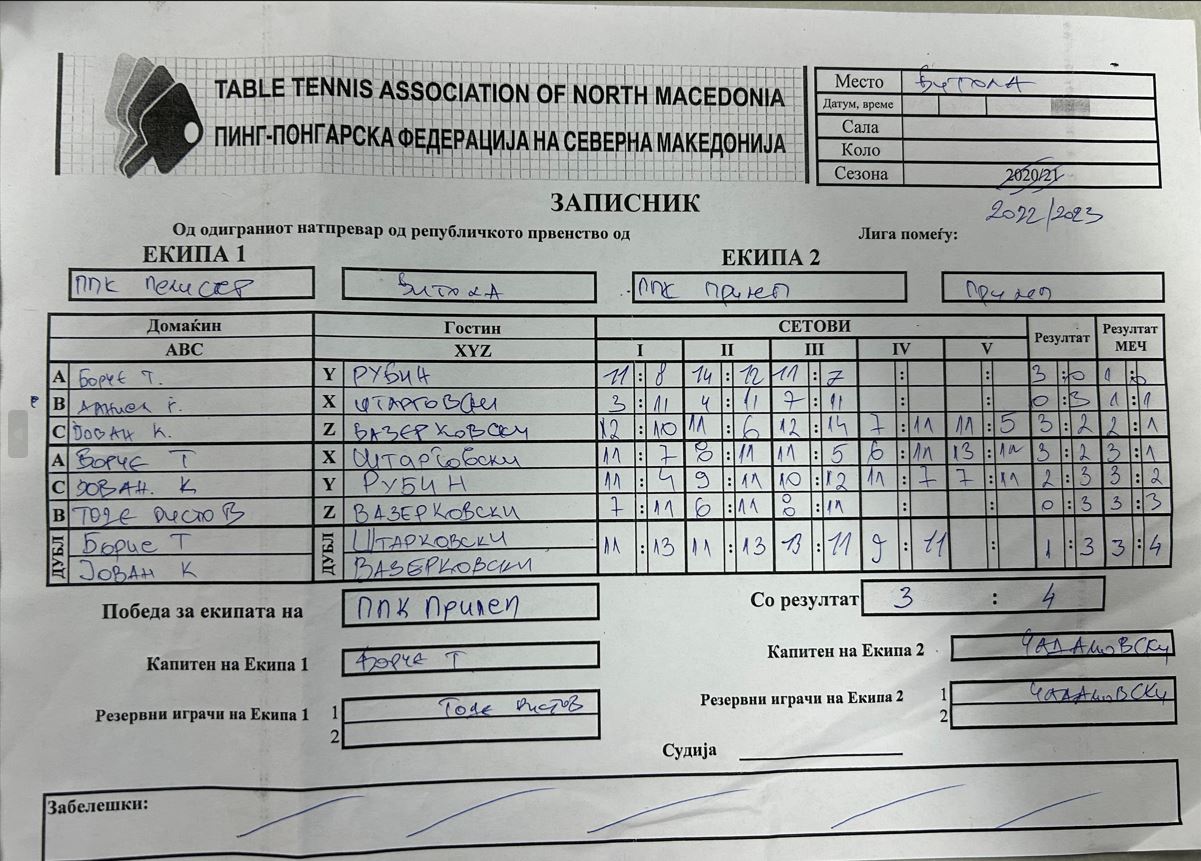 TABLE TENNIS ASSOCIATION OF NORTH MACEDONIA
ПИНГ-ПОНГАРСКА ФЕДЕРАЦИЈА НА СЕВЕРНА МАКЕДОНИЈА
Место Битола
Датум, време
Сала
Коло
Сезона 2020/21
2022/2023
ЗАПИСНИК
Од одиграниот натпревар од републичкото првенство од Лига помеѓу:
ЕКИПА 1 ЕКИПА 2
ППК Пелистер Битола ППК Прилеп Прилеп
Домаќин Гостин СЕТОВИ Резултат Резултат МЕЧ
ABC XYZ I II III IV V
A Борче Т. Y РУБИН 11 : 8 14 : 12 11 : 7 : : 3 : 0 1 : 0
B Даниел Г. X Штарговски 3 : 11 4 : 11 7 : 11 : : 0 : 3 1 : 1
C Јован К. Z ВАЗЕРКОВСКИ 12 : 10 11 : 6 12 : 14 7 : 11 11 : 5 3 : 2 2 : 1
A Борче Т X Штарговски 11 : 7 8 : 11 11 : 5 6 : 11 13 : 11 3 : 2 3 : 1
C Јован. К Y РУБИН 11 : 4 9 : 11 10 : 12 11 : 7 7 : 11 2 : 3 3 : 2
B Тоде Ристов Z ВАЗЕРКОВСКИ 7 : 11 6 : 11 8 : 11 : : 0 : 3 3 : 3
ДУБЛ Борче Т ДУБЛ ШТАРКОВСКИ 11 : 13 11 : 13 13 : 11 9 : 11 : 1 : 3 3 : 4
Јован К ВАЗЕРКОВСКИ
Победа за екипата на ППК Прилеп Со резултат 3 : 4
Капитен на Екипа 1 Борче Т Капитен на Екипа 2 Чадамовски
Резервни играчи на Екипа 1 1 Тоде Ристов Резервни играчи на Екипа 2 1 Чадамовски
2 2
Судија
Забелешки: